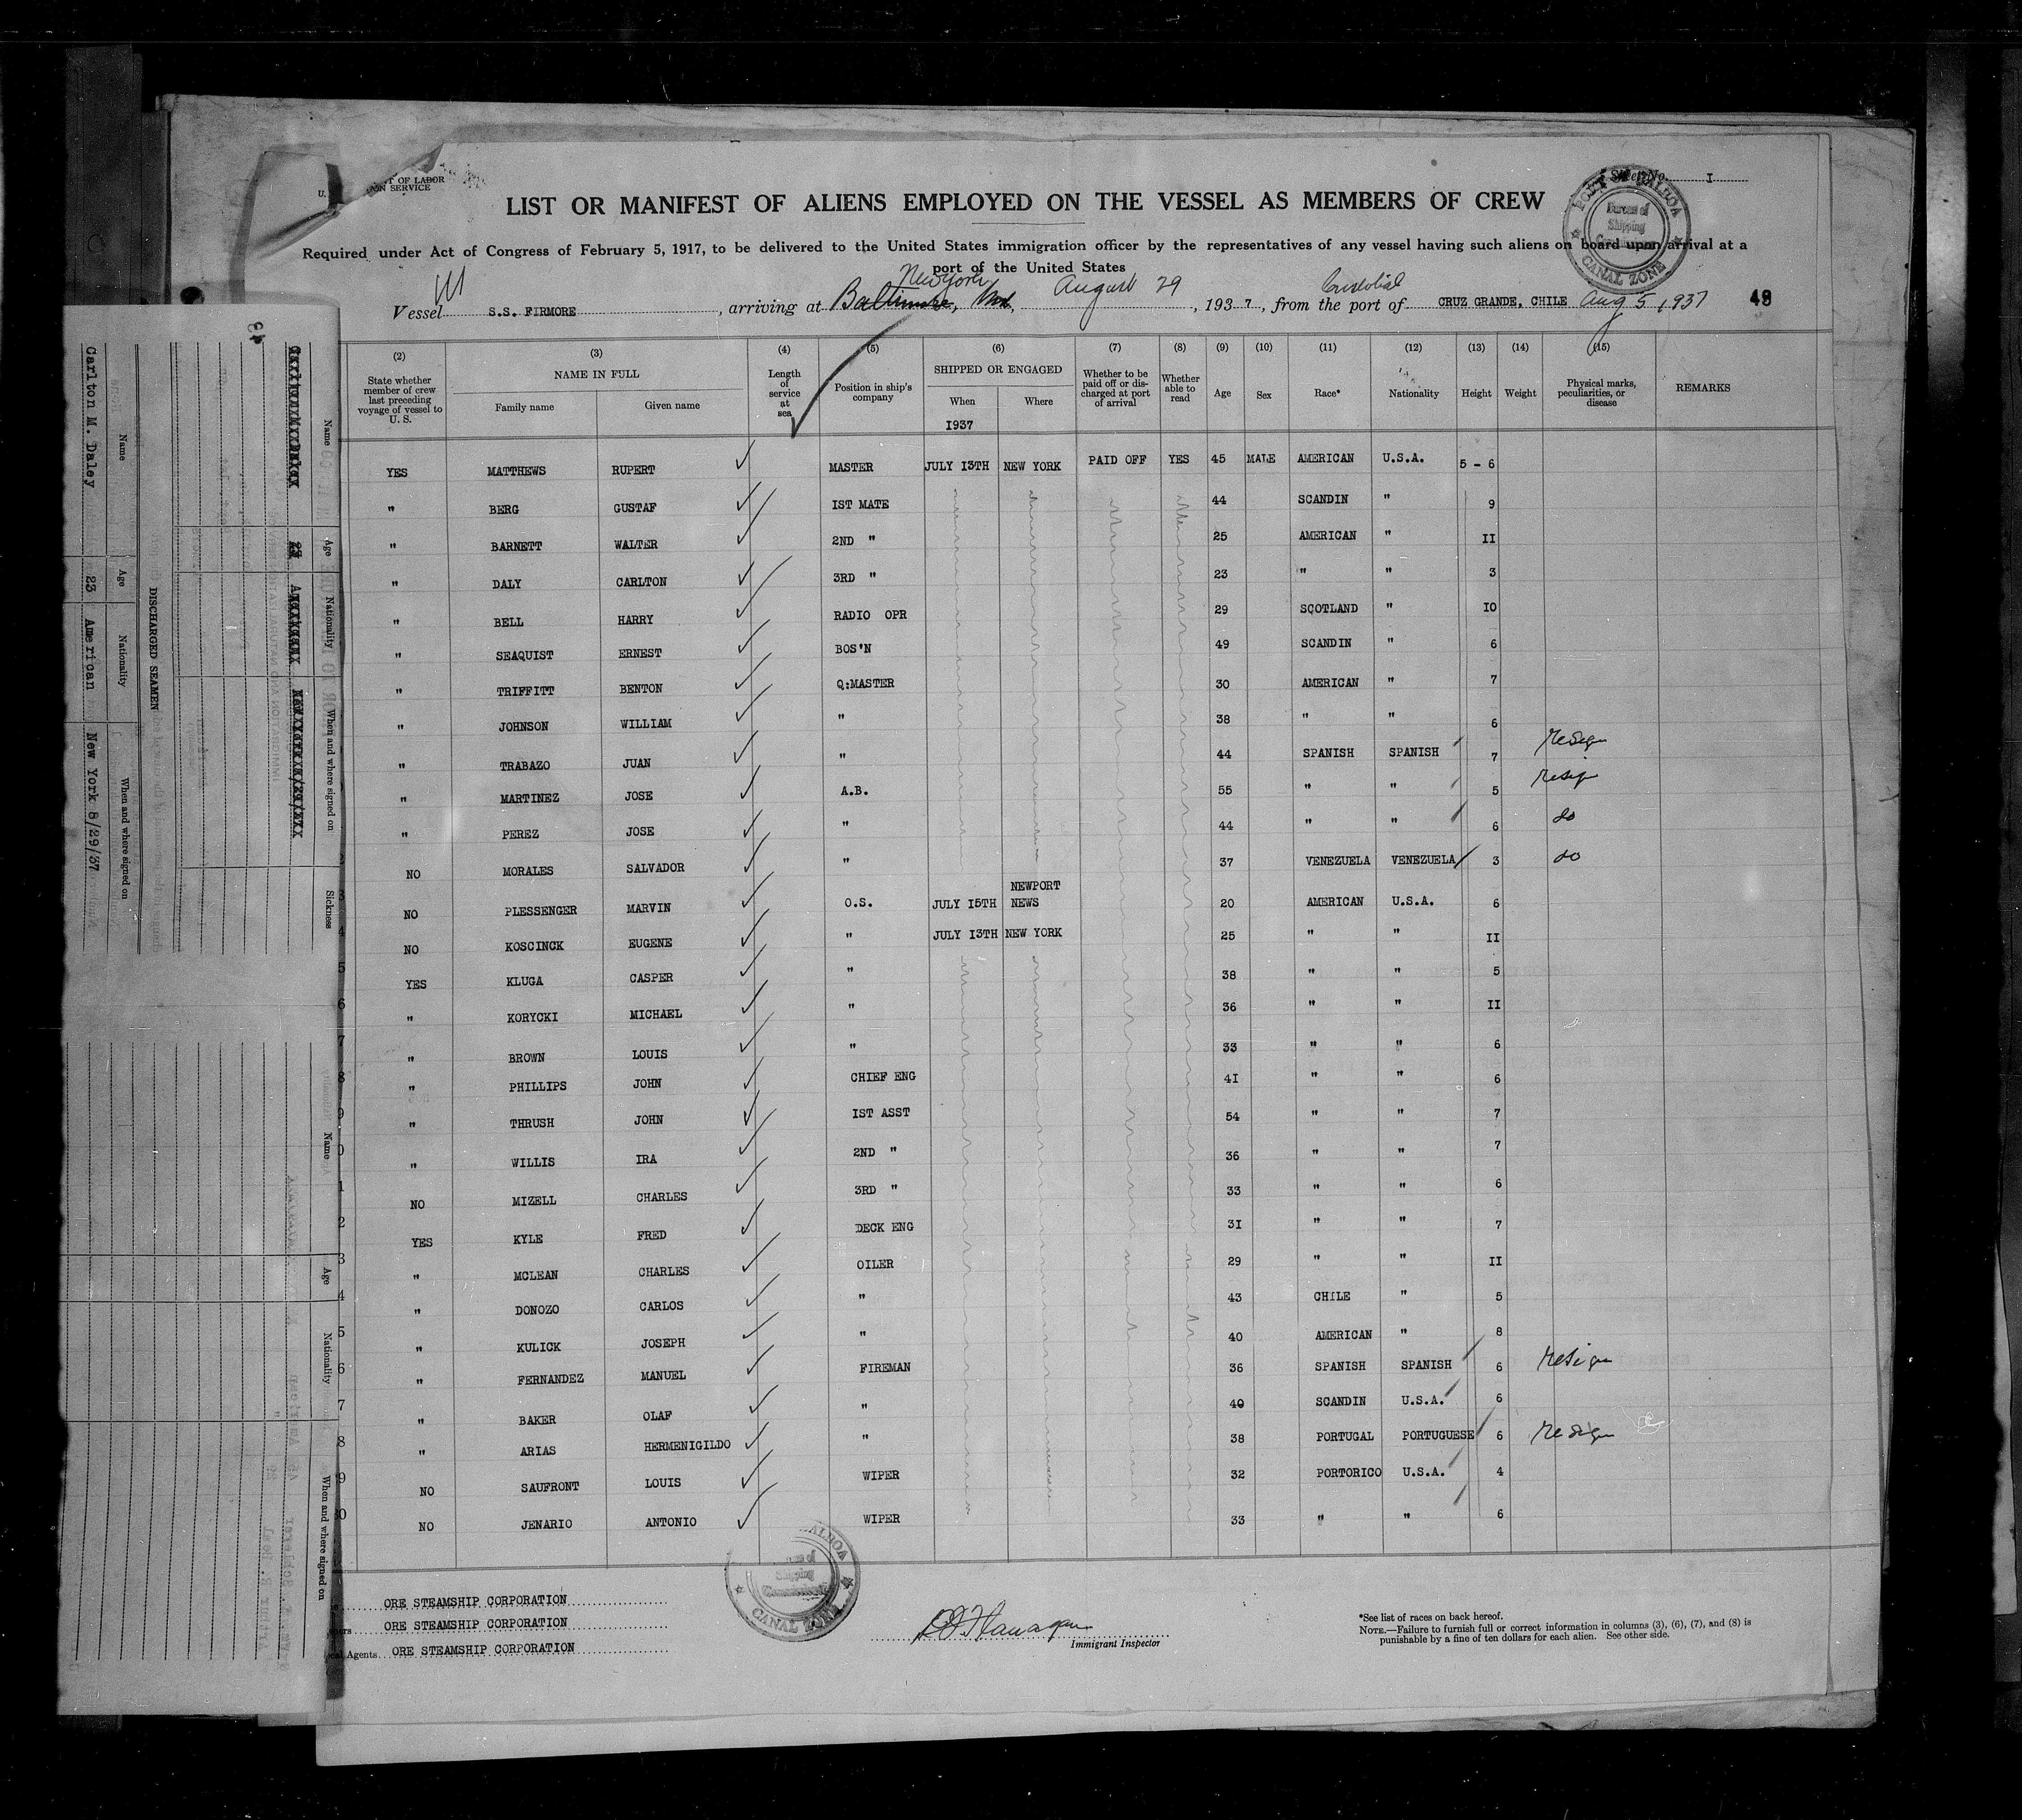 T OF LABOR
U.
ON SERVICE
Sheet No. I
LIST OR MANIFEST OF ALIENS EMPLOYED ON THE VESSEL AS MEMBERS OF CREW
Required under Act of Congress of February 5, 1917, to be delivered to the United States immigration officer by the representatives of any vessel having such aliens on board upon arrival at a
port of the United States
New York
Vessel S.S. FIRMORE, arriving at Baltimore, Md, August 29, 1937, from the port of CRUZ GRANDE, CHILE Aug 5, 1937
Cristobal
PORT BALBOA
Bureau of
Shipping
CANAL ZONE
(2) (3) (4) (5) (6) (7) (8) (9) (10) (11) (12) (13) (14) (15)
State whether member of crew last preceding voyage of vessel to U. S.
NAME IN FULL
Family name Given name
Length of service at sea
Position in ship's company
SHIPPED OR ENGAGED
When Where
1937
Whether to be paid off or discharged at port of arrival
Whether able to read
Age Sex Race* Nationality Height Weight
Physical marks, peculiarities, or disease
REMARKS
YES MATTHEWS RUPERT MASTER JULY I3TH NEW YORK PAID OFF YES 45 MALE AMERICAN U.S.A. 5 - 6
" BERG GUSTAF IST MATE 44 SCANDIN " 9
" BARNETT WALTER 2ND " 25 AMERICAN " II
" DALY CARLTON 3RD " 23 " " 3
" BELL HARRY RADIO OPR 29 SCOTLAND " IO
" SEAQUIST ERNEST BOS'N 49 SCANDIN " 6
" TRIFFITT BENTON Q:MASTER 30 AMERICAN " 7
" JOHNSON WILLIAM " 38 " " 6
" TRABAZO JUAN " 44 SPANISH SPANISH 7 resign
" MARTINEZ JOSE A.B. 55 " " 5 resign
" PEREZ JOSE " 44 " " 6 do
NO MORALES SALVADOR " 37 VENEZUELA VENEZUELA 3 do
NO PLESSENGER MARVIN O.S. JULY I5TH NEWPORT NEWS 20 AMERICAN U.S.A. 6
NO KOSCINCK EUGENE " JULY I3TH NEW YORK 25 " " II
YES KLUGA CASPER " 38 " " 5
" KORYCKI MICHAEL " 36 " " II
" BROWN LOUIS " 33 " " 6
" PHILLIPS JOHN CHIEF ENG 4I " " 6
" THRUSH JOHN IST ASST 54 " " 7
" WILLIS IRA 2ND " 36 " " 7
NO MIZELL CHARLES 3RD " 33 " " 6
YES KYLE FRED DECK ENG 3I " " 7
" MCLEAN CHARLES OILER 29 " " II
" DONOZO CARLOS " 43 CHILE " 5
" KULICK JOSEPH " 40 AMERICAN " 8
" FERNANDEZ MANUEL FIREMAN 36 SPANISH SPANISH 6 resign
" BAKER OLAF " 40 SCANDIN U.S.A. 6
" ARIAS HERMENIGILDO " 38 PORTUGAL PORTUGUESE 6 resign
NO SAUFRONT LOUIS WIPER 32 PORTORICO U.S.A. 4
NO JENARIO ANTONIO WIPER 33 " " 6
ORE STEAMSHIP CORPORATION
ORE STEAMSHIP CORPORATION
Agents ORE STEAMSHIP CORPORATION
Shipping
CANAL ZONE
Immigrant Inspector
*See list of races on back hereof.
NOTE.—Failure to furnish full or correct information in columns (3), (6), (7), and (8) is
punishable by a fine of ten dollars for each alien. See other side.
DISCHARGED SEAMEN
Name Age Nationality When and where signed on
Carlton M. Daley 23 American New York 8/29/37
Name Age Nationality When and where signed on Sickness
Name Age Nationality When and where signed on